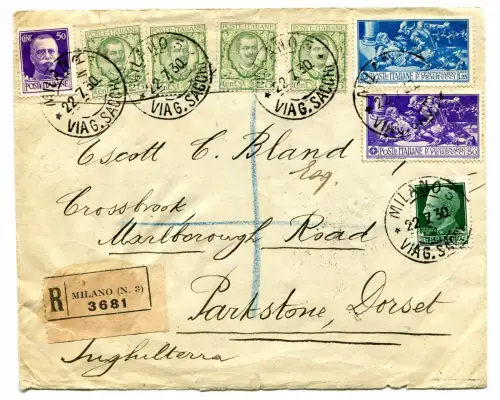 CENT. 50
POSTE ITALIANE
POSTE ITALIANE
POSTE ITALIANE
POSTE ITALIANE
POSTE ITALIANE
MILANO 3
22.7.30
VIA G. SACCHI
MILANO 3
22.7.30
VIA G. SACCHI
MILANO 3
22.7.30
VIA G. SACCHI
POSTE ITALIANE
POSTE ITALIANE
MILANO 3
22.7.30
VIA G. SACCHI
Escott C. Bland
Esq.
Crossbrook
Marlborough Road
Parkstone, Dorset
Inghilterra
R
MILANO (N. 3)
3681